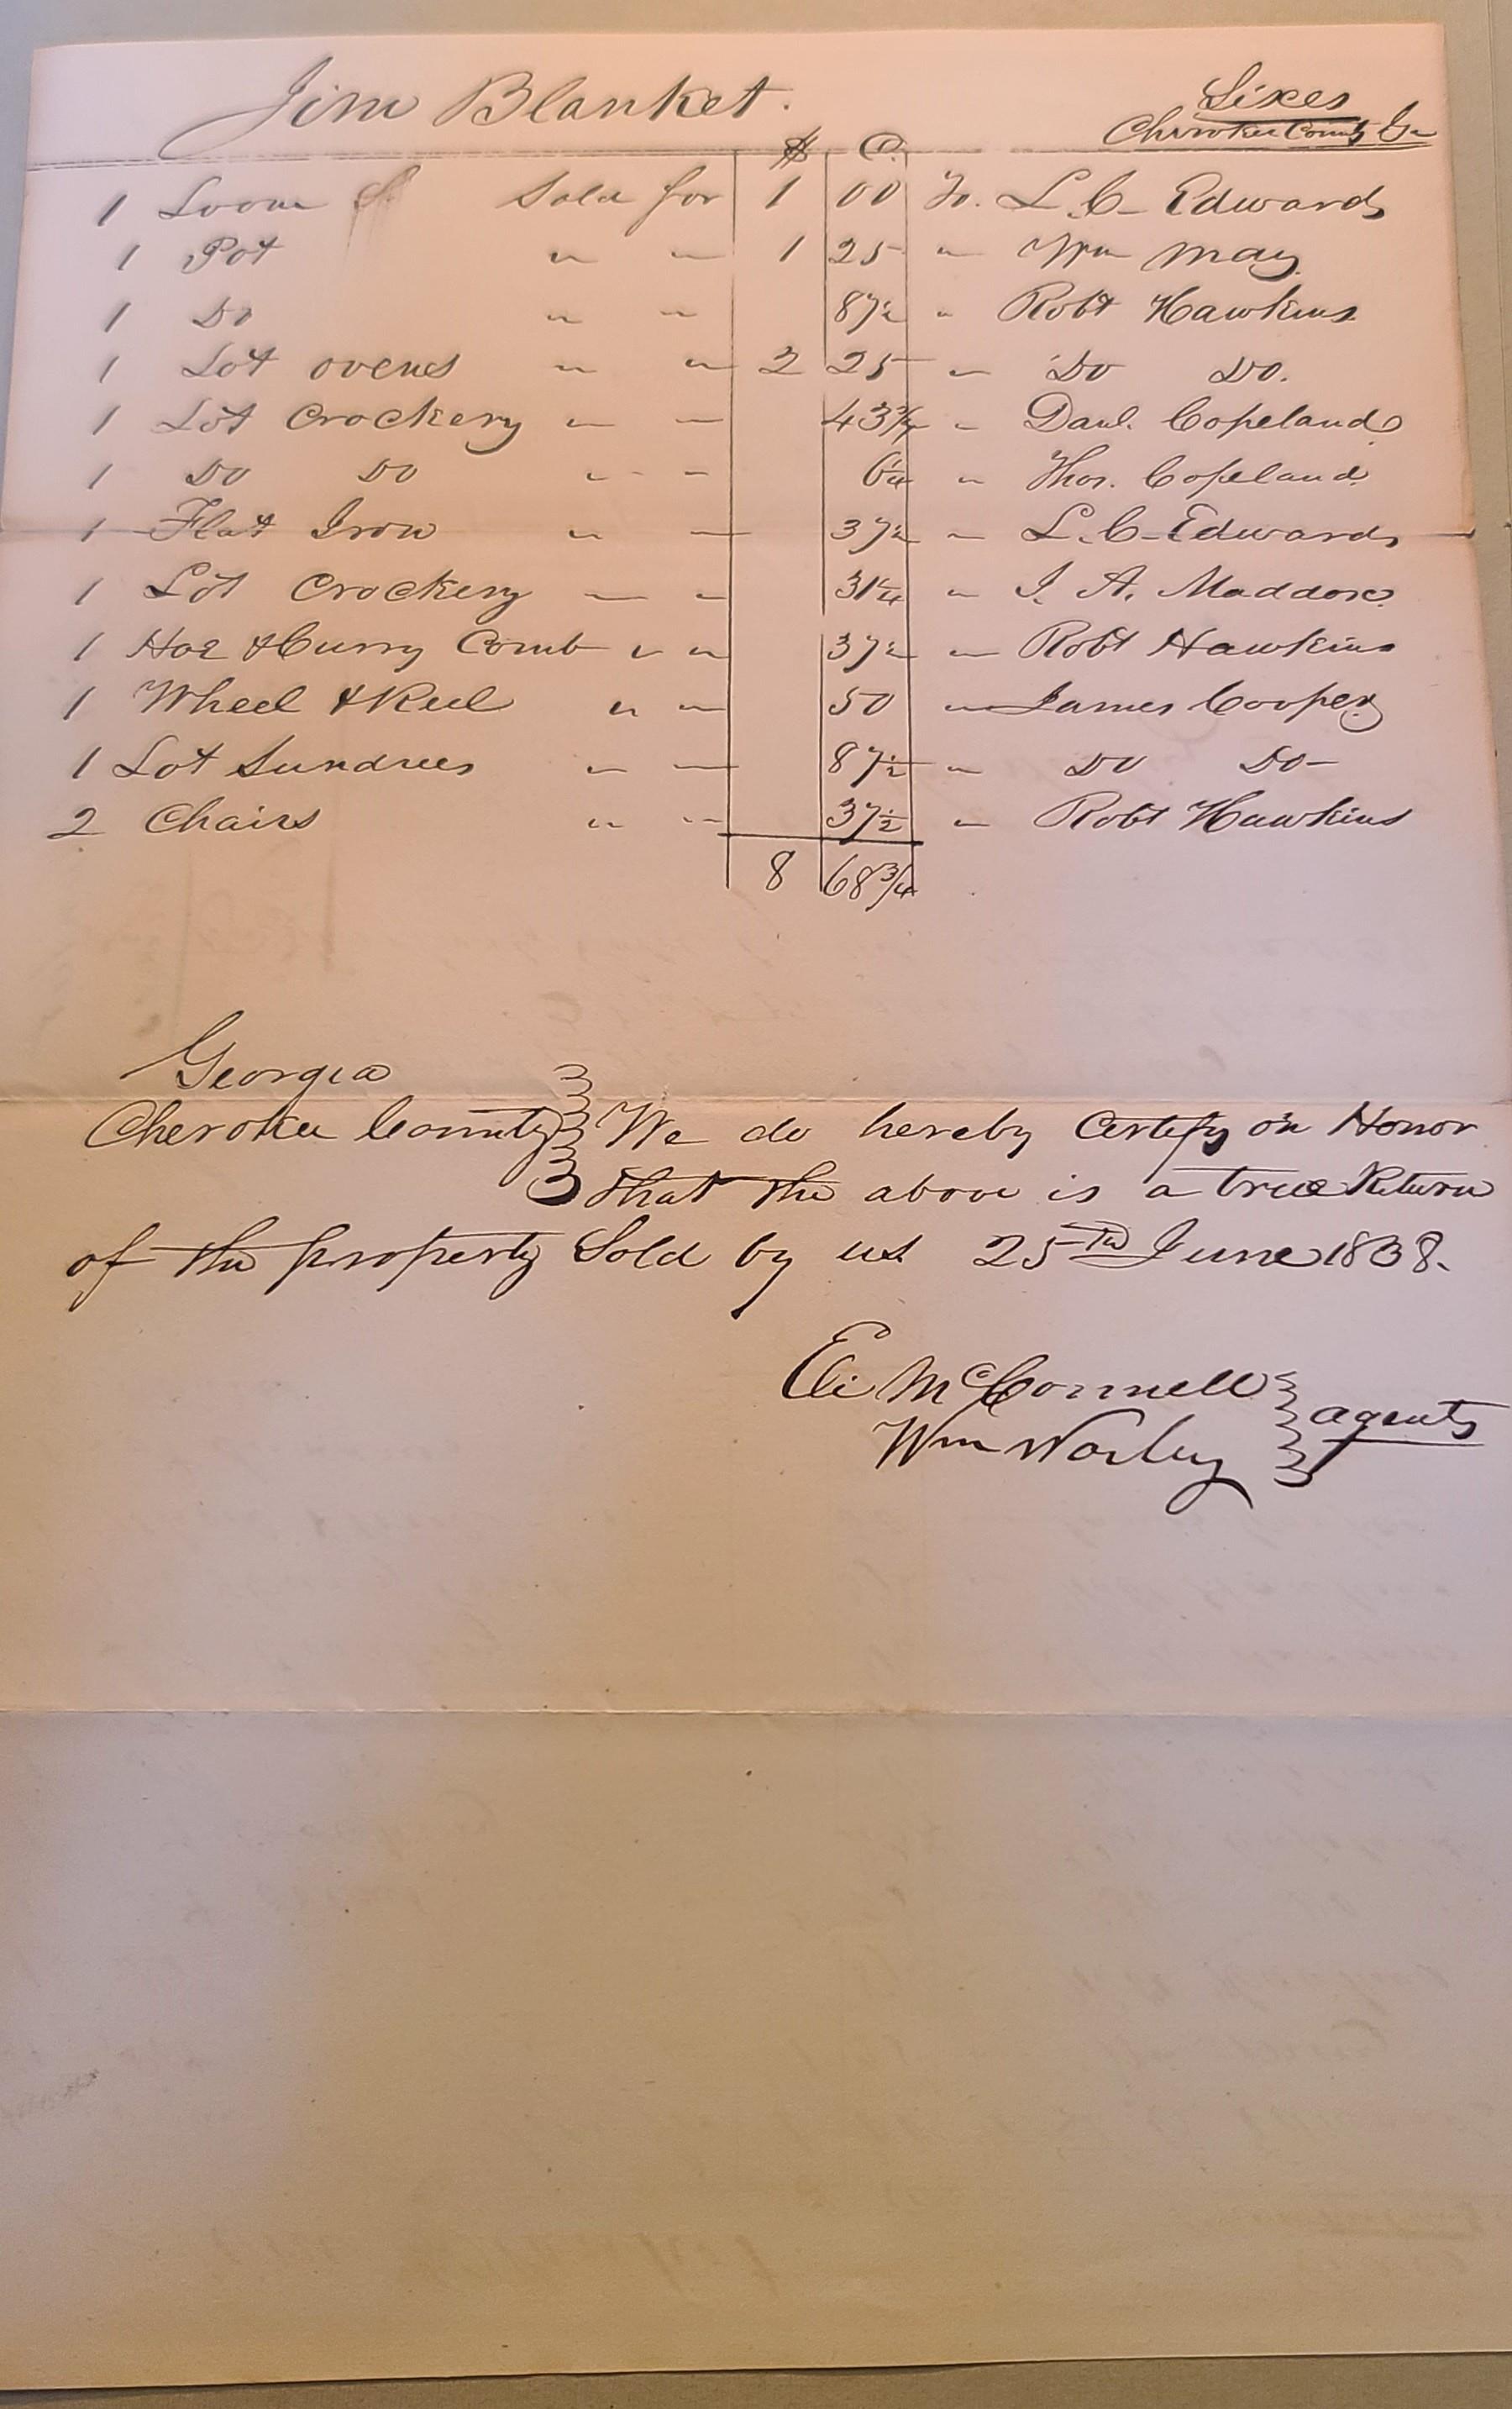 Jim Blanket.
Sixes
Cherokee County Ga
$ C.
1 Loom &. Sold for 1 00 To. L. C. Edwards
1 Pot " " 1 25 " Wm May
1 Do " " 87½ " Robt Hawkins
1 Lot ovens " " 2 25 " Do Do.
1 Lot Crockery " " 43¾ " Danl. Copeland
1 Do Do " " 6¼ " Thos. Copeland
1 Flat Iron " " 37½ " L. C. Edwards
1 Lot Crockery " " 31¼ " J. A. Maddox
1 Hoe & Curry Comb " " 37½ " Robt Hawkins
1 Wheel & Reel " " 50 " James Cooper
1 Lot Sundries " " 87½ " Do Do
2 Chairs " " 37½ " Robt Hawkins
8 68¾
Georgia
Cherokee County We do hereby Certify on Honor
that the above is a true Return
of the property Sold by us 25th June 1838.
Eli McConnell
Wm Worley agents